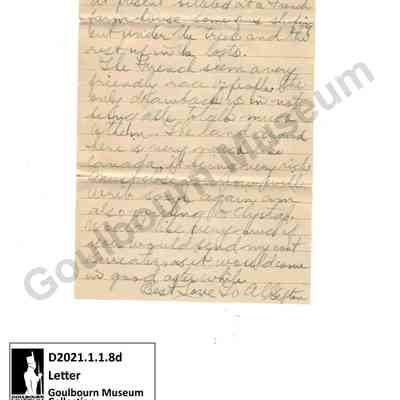 at present situated at a French
farm house some of us sleeping
out under the trees and the
rest of us in the lofts.
The French seem a very
friendly race of people the
only drawback is in not
being able to talk much
to them. The land around
here is very much like
Canada, it seems very rich
write soon again am
also writing to Clysta
would like very much if
would send my coat
sweater as it would come
in good after while
Best Love To All
Goulbourn Museum
D2021.1.1.8d
Letter
Goulbourn Museum
Collection
GOULBOURN